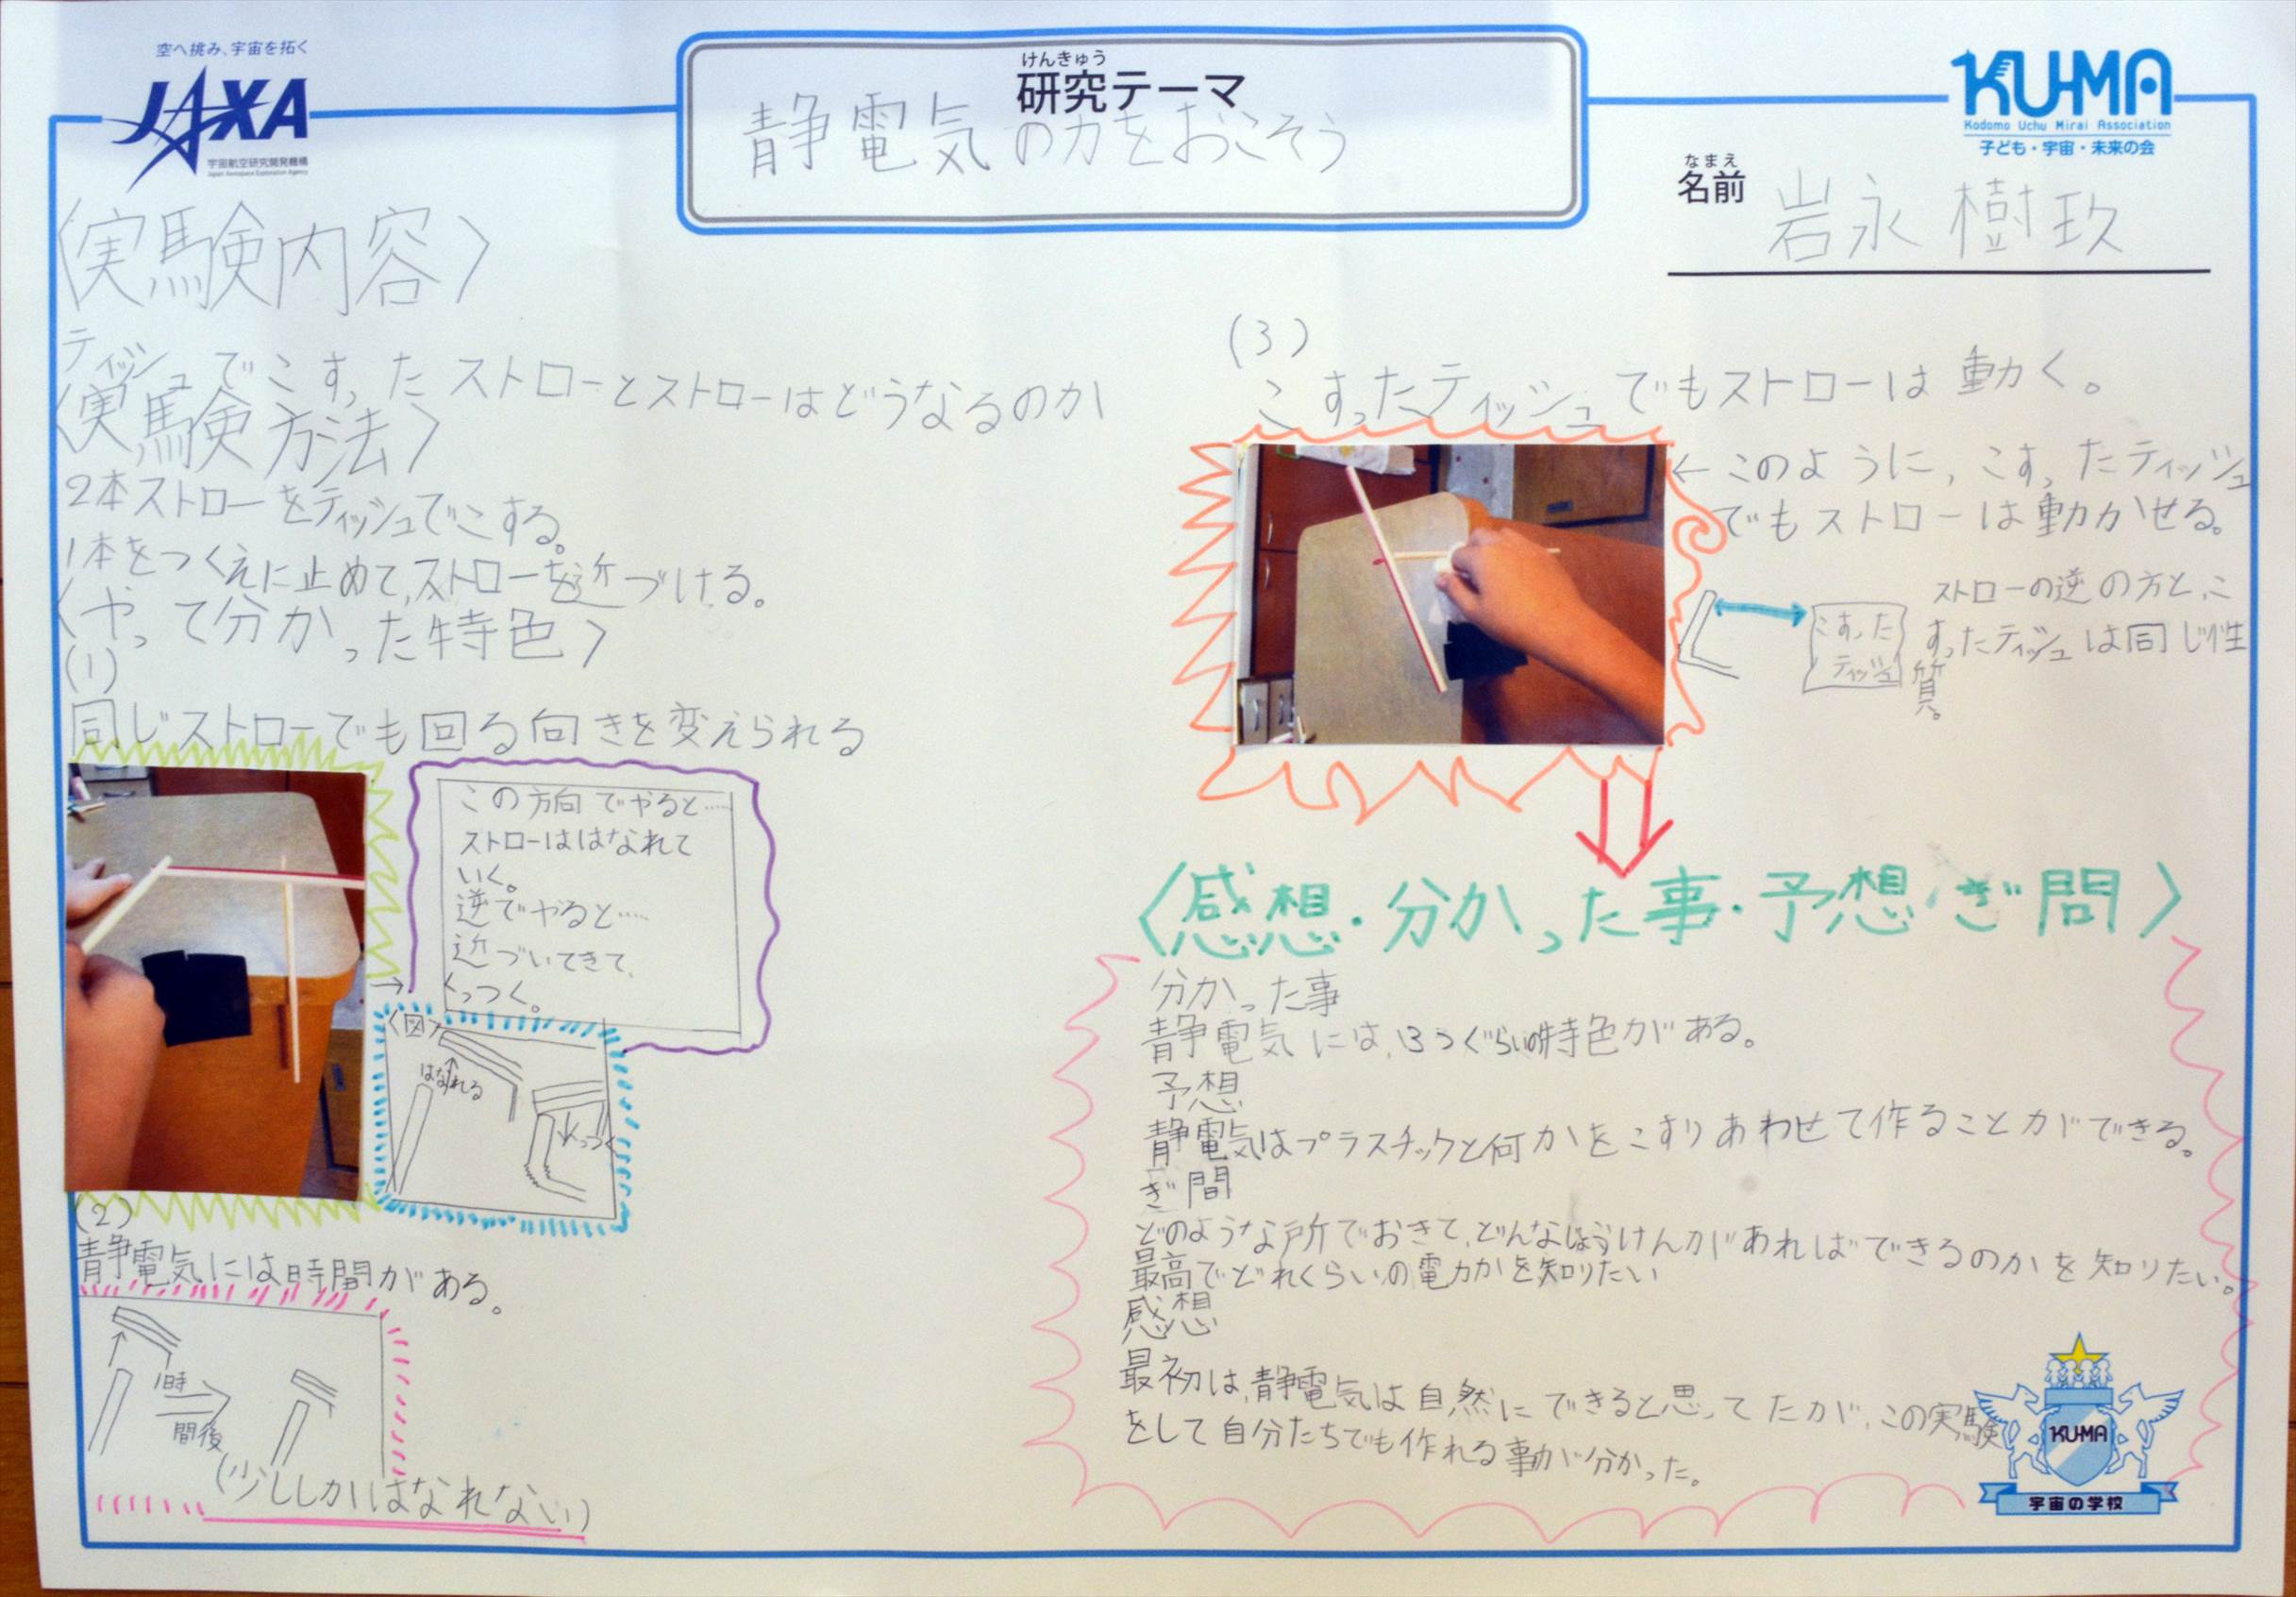 空へ挑み、宇宙を拓く
JAXA
宇宙航空研究開発機構
Japan Aerospace Exploration Agency
けんきゅう
研究テーマ
静電気の力をおこそう
KU-MA
Kodomo Uchu Mirai Association
子ども・宇宙・未来の会
なまえ
名前
岩永樹玖
〈実験内容〉
ティッシュでこすったストローとストローはどうなるのか
〈実験方法〉
2本ストローをティッシュでこする。
1本をつくえに止めて、ストローを近づける。
〈やって分かった特色〉
(1)
同じストローでも回る向きを変えられる
この方向でやると……
ストローははなれて
いく。
逆でやると……
近づいてきて、
くっつく。
→
〈図〉
はなれる
くっつく
(2)
静電気には時間がある。
1時
間後
(少ししかはなれない)
(3)
こすったティッシュでもストローは動く。
←このように、こすったティッシュ
でもストローは動かせる。
こすった
ティッシュ
ストローの逆の方と、こ
すったティッシュは同じ性
質。
〈感想・分かった事・予想・ぎ問〉
分かった事
静電気には、3つぐらいの特色がある。
予想
静電気はプラスチックと何かをこすりあわせて作ることができる。
ぎ問
どのような所でおきて、どんなじょうけんがあればできるのかを知りたい。
最高でどれくらいの電力かを知りたい
感想
最初は、静電気は自然にできると思ってたが、この実験
をして自分たちでも作れる事が分かった。
KU-MA
宇宙の学校